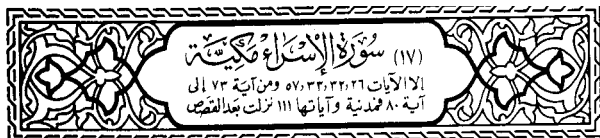 (١٧) سُورَةُ الإِسْرَاءِ مَكِّيَّة
إلا الآيات ٢٦، ٣٢، ٣٣، ٥٧، ومن آية ٧٣ إلى
آية ٨٠ فمدنية وآياتها ١١١ نزلت بعد القصص